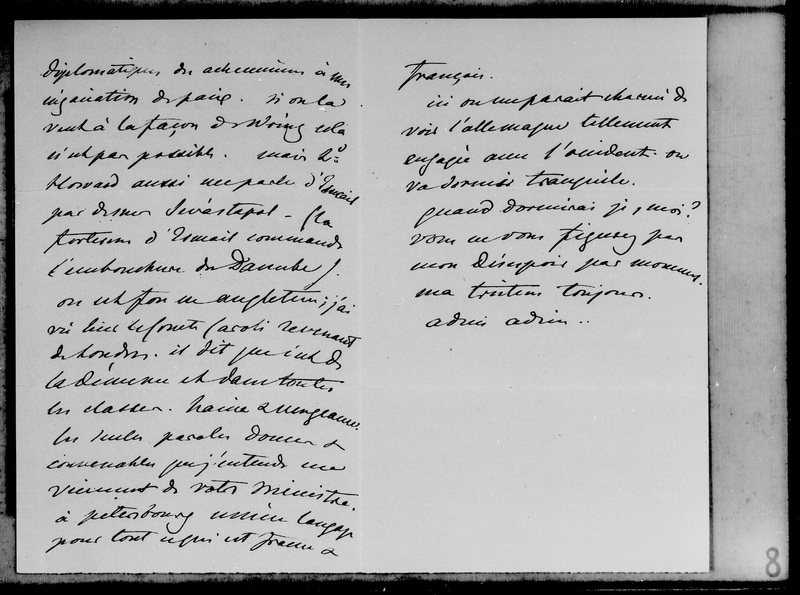 diplomatiques de acheminer à une
négociation de paix. si on la
veut à la façon de cela
n'est pas possible. mais Ld
Howard aussi me parle d'Ismail
par dessus Sévastopol – (la
forteresse d'Ismail commande
l'embouchure du Danube).
on est fou en angleterre; j'ai
vu hier le Comte revenant
de Londres. il dit que c'est de
la démence et dans toutes
les classes. haine & vengeance.
les seules paroles douces &
convenables que j'entends me
viennent de votre Ministre.
à pétersbourg même langage
pour tout ce qui est france &
français.
ici on me parait charmé de
voir l'allemagne tellement
engagée avec l'occident. on
va dormir tranquille.
quand dormirai je, moi?
vous ne vous figurez pas
mon désespoir par momens.
ma tristesse toujours.
adieu adieu..
8